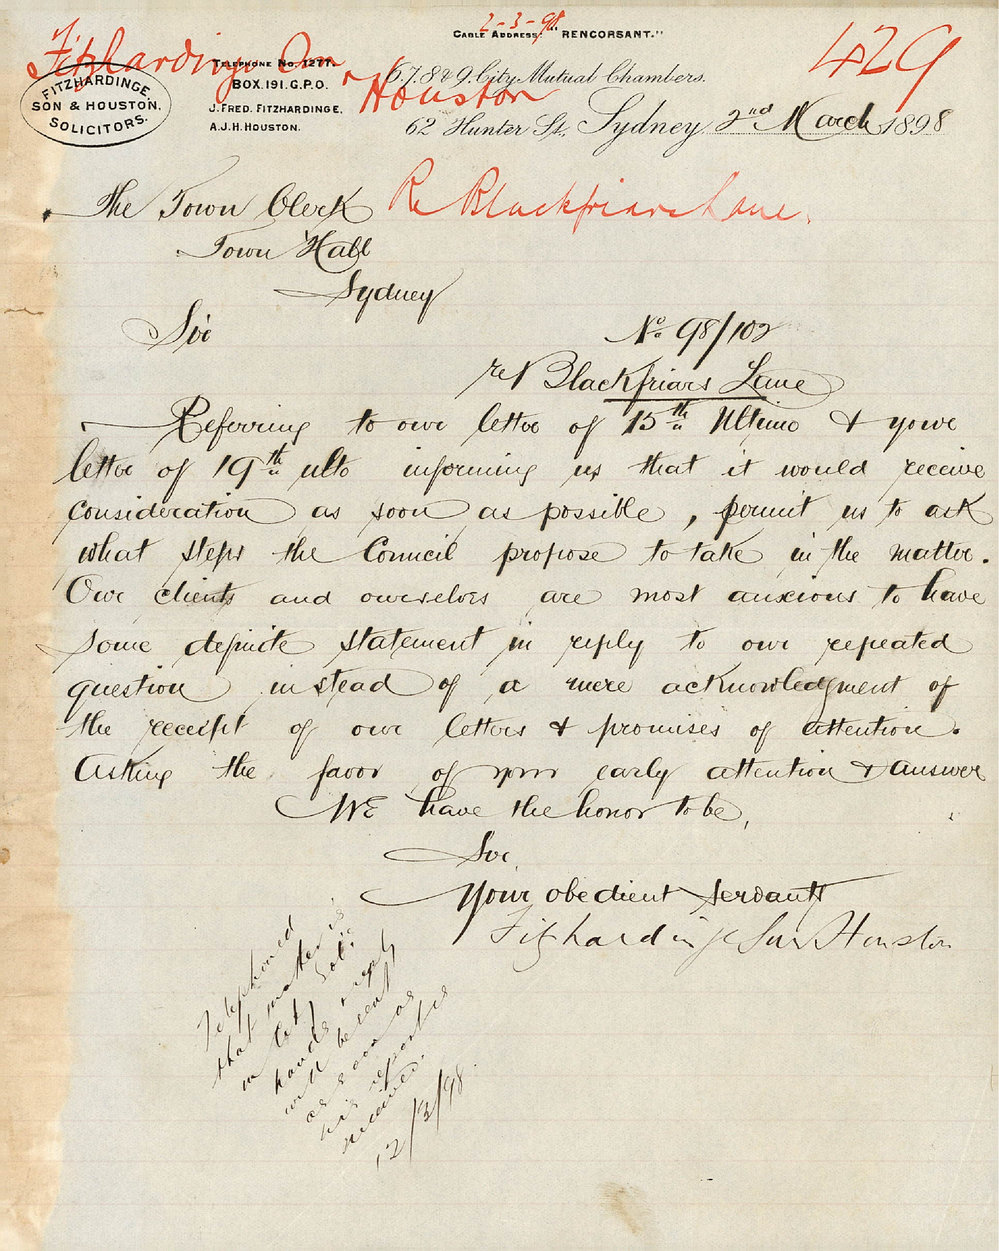 2-3-98
CABLE ADDRESS: "RENCORSANT."
429
Fitzhardinge Son & Houston
FITZHARDINGE,
SON & HOUSTON,
SOLICITORS.
TELEPHONE No. 1277.
BOX. 191. G.P.O.
J. FRED. FITZHARDINGE.
A.J.H. HOUSTON.
6. 7. 8 & 9. City Mutual Chambers.
62 Hunter St., Sydney, 2nd March 1898
The Town Clerk
Re Blackfriars Lane.
Town Hall
Sydney
Sir
No. 98/102
re Blackfriars Lane
Referring to our letter of 15th Ultimo & your
letter of 19th ulto informing us that it would receive
consideration as soon as possible, permit us to ask
what steps the Council propose to take in the matter.
Our clients and ourselves are most anxious to have
some definite statement in reply to our repeated
question instead of a mere acknowledgment of
the receipt of our letters & promises of attention.
Asking the favor of your early attention & answer
We have the honor to be,
Sir
Your obedient servants
Fitzhardinge Son & Houston
Telephoned
that matter is
in City Solr's
hands & reply
will be sent
as soon as
his report is
received.
12/3/98